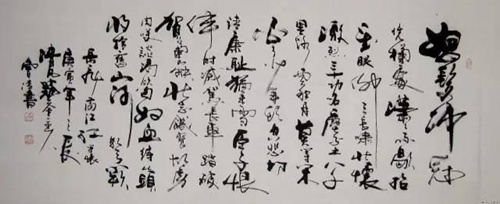 怒髮冲冠
凭栏处潇潇雨歇抬
望眼仰天长啸壮怀
激烈三十功名尘与土八千
里路云和月莫等闲
白了少年头空悲切
靖康耻犹未雪臣子恨
何时灭驾长车踏破
贺兰山缺壮志饥餐胡虏
肉笑谈渴饮匈奴血待从头
收拾旧山河朝天阙
岳飞满江红
庚寅年之
书